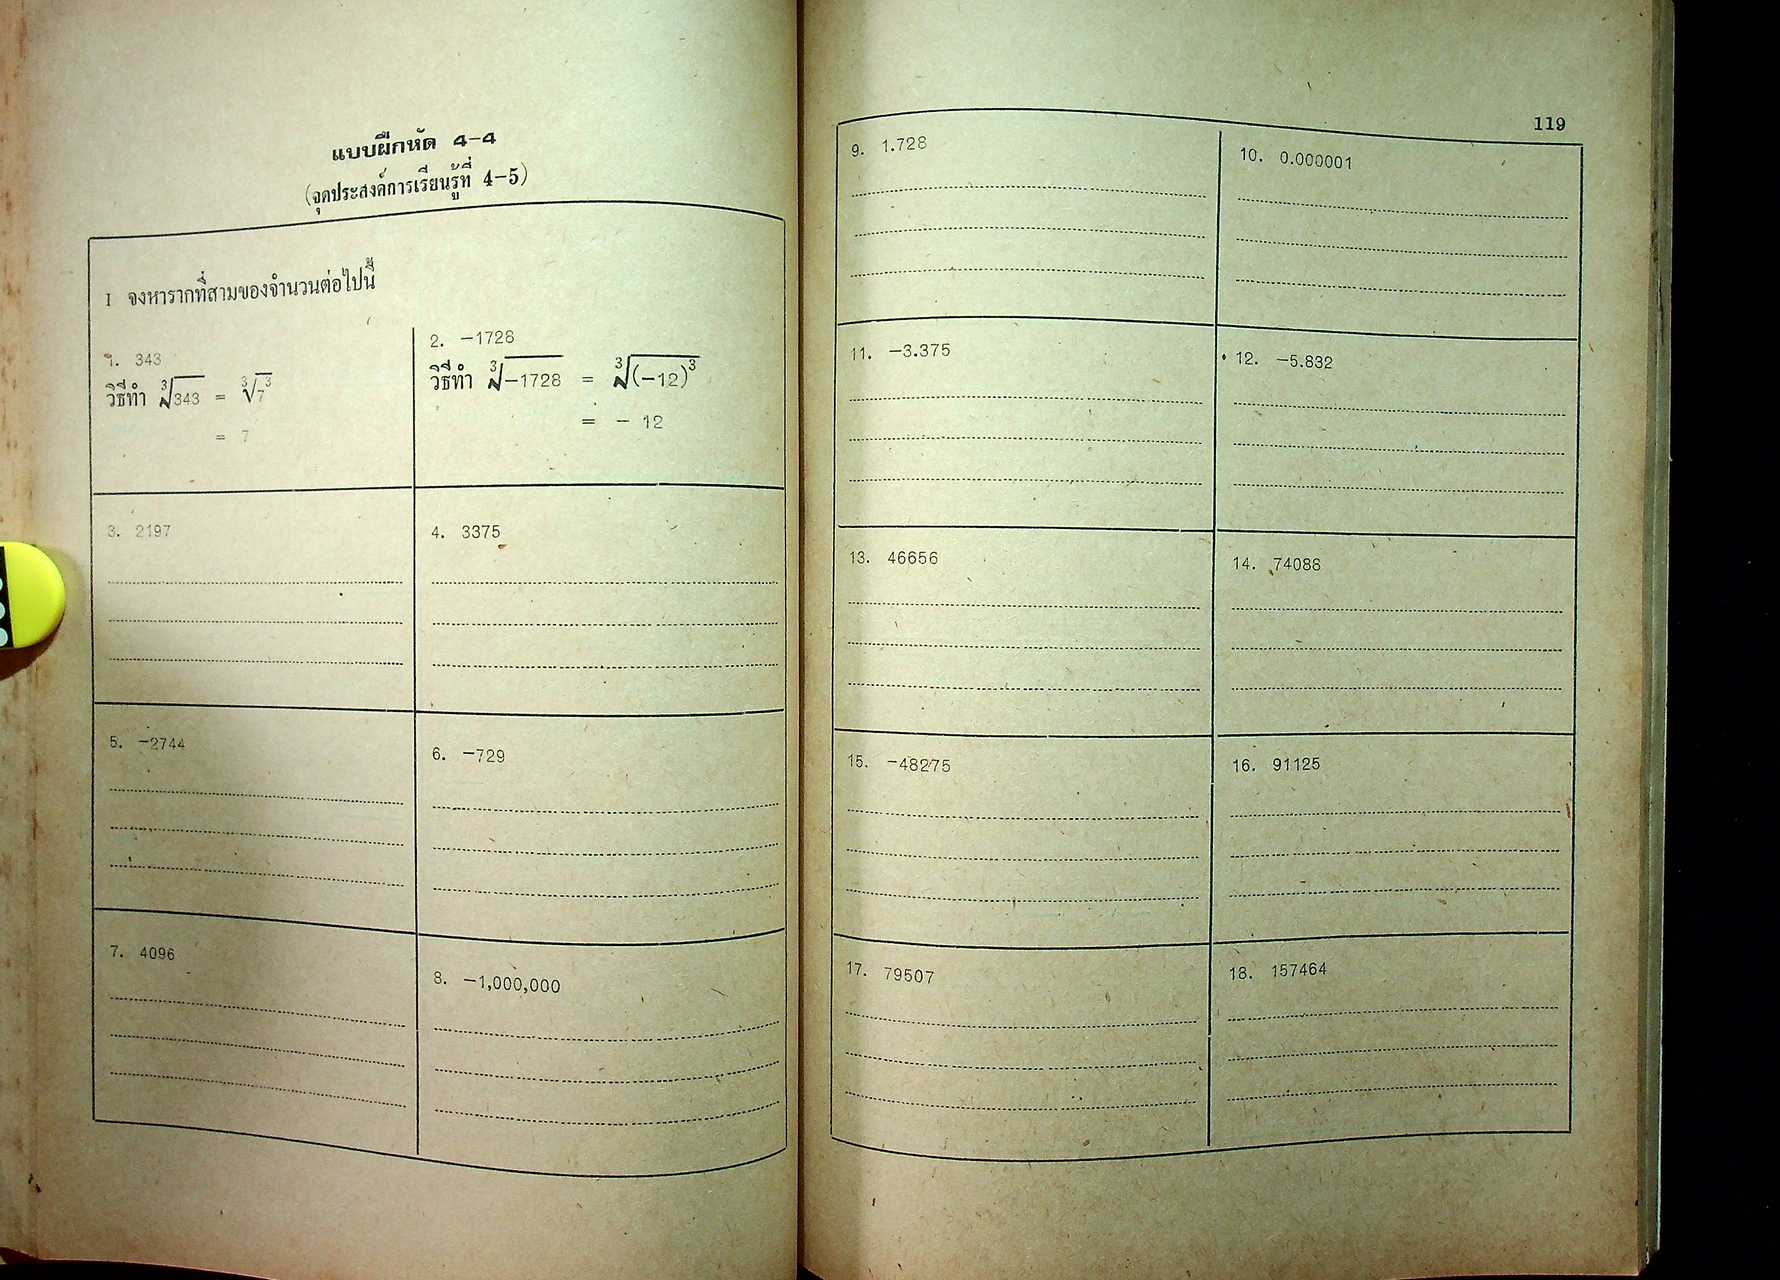 แบบฝึกหัด 4-4
(จุดประสงค์การเรียนรู้ที่ 4-5)
I จงหารากที่สามของจำนวนต่อไปนี้
1. 343
วิธีทำ ∛343 = ∛7³
= 7
2. -1728
วิธีทำ ∛-1728 = ∛(-12)³
= - 12
3. 2197
4. 3375
5. -2744
6. -729
7. 4096
8. -1,000,000
119
9. 1.728
10. 0.000001
11. -3.375
12. -5.832
13. 46656
14. 74088
15. -48275
16. 91125
17. 79507
18. 157464